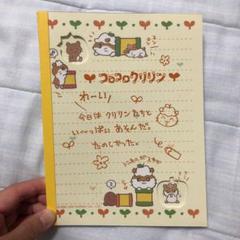 コロコロクリリン
わーい
今日は クリリンたちと
い〜っぱい あそんだ。
たのしかった。